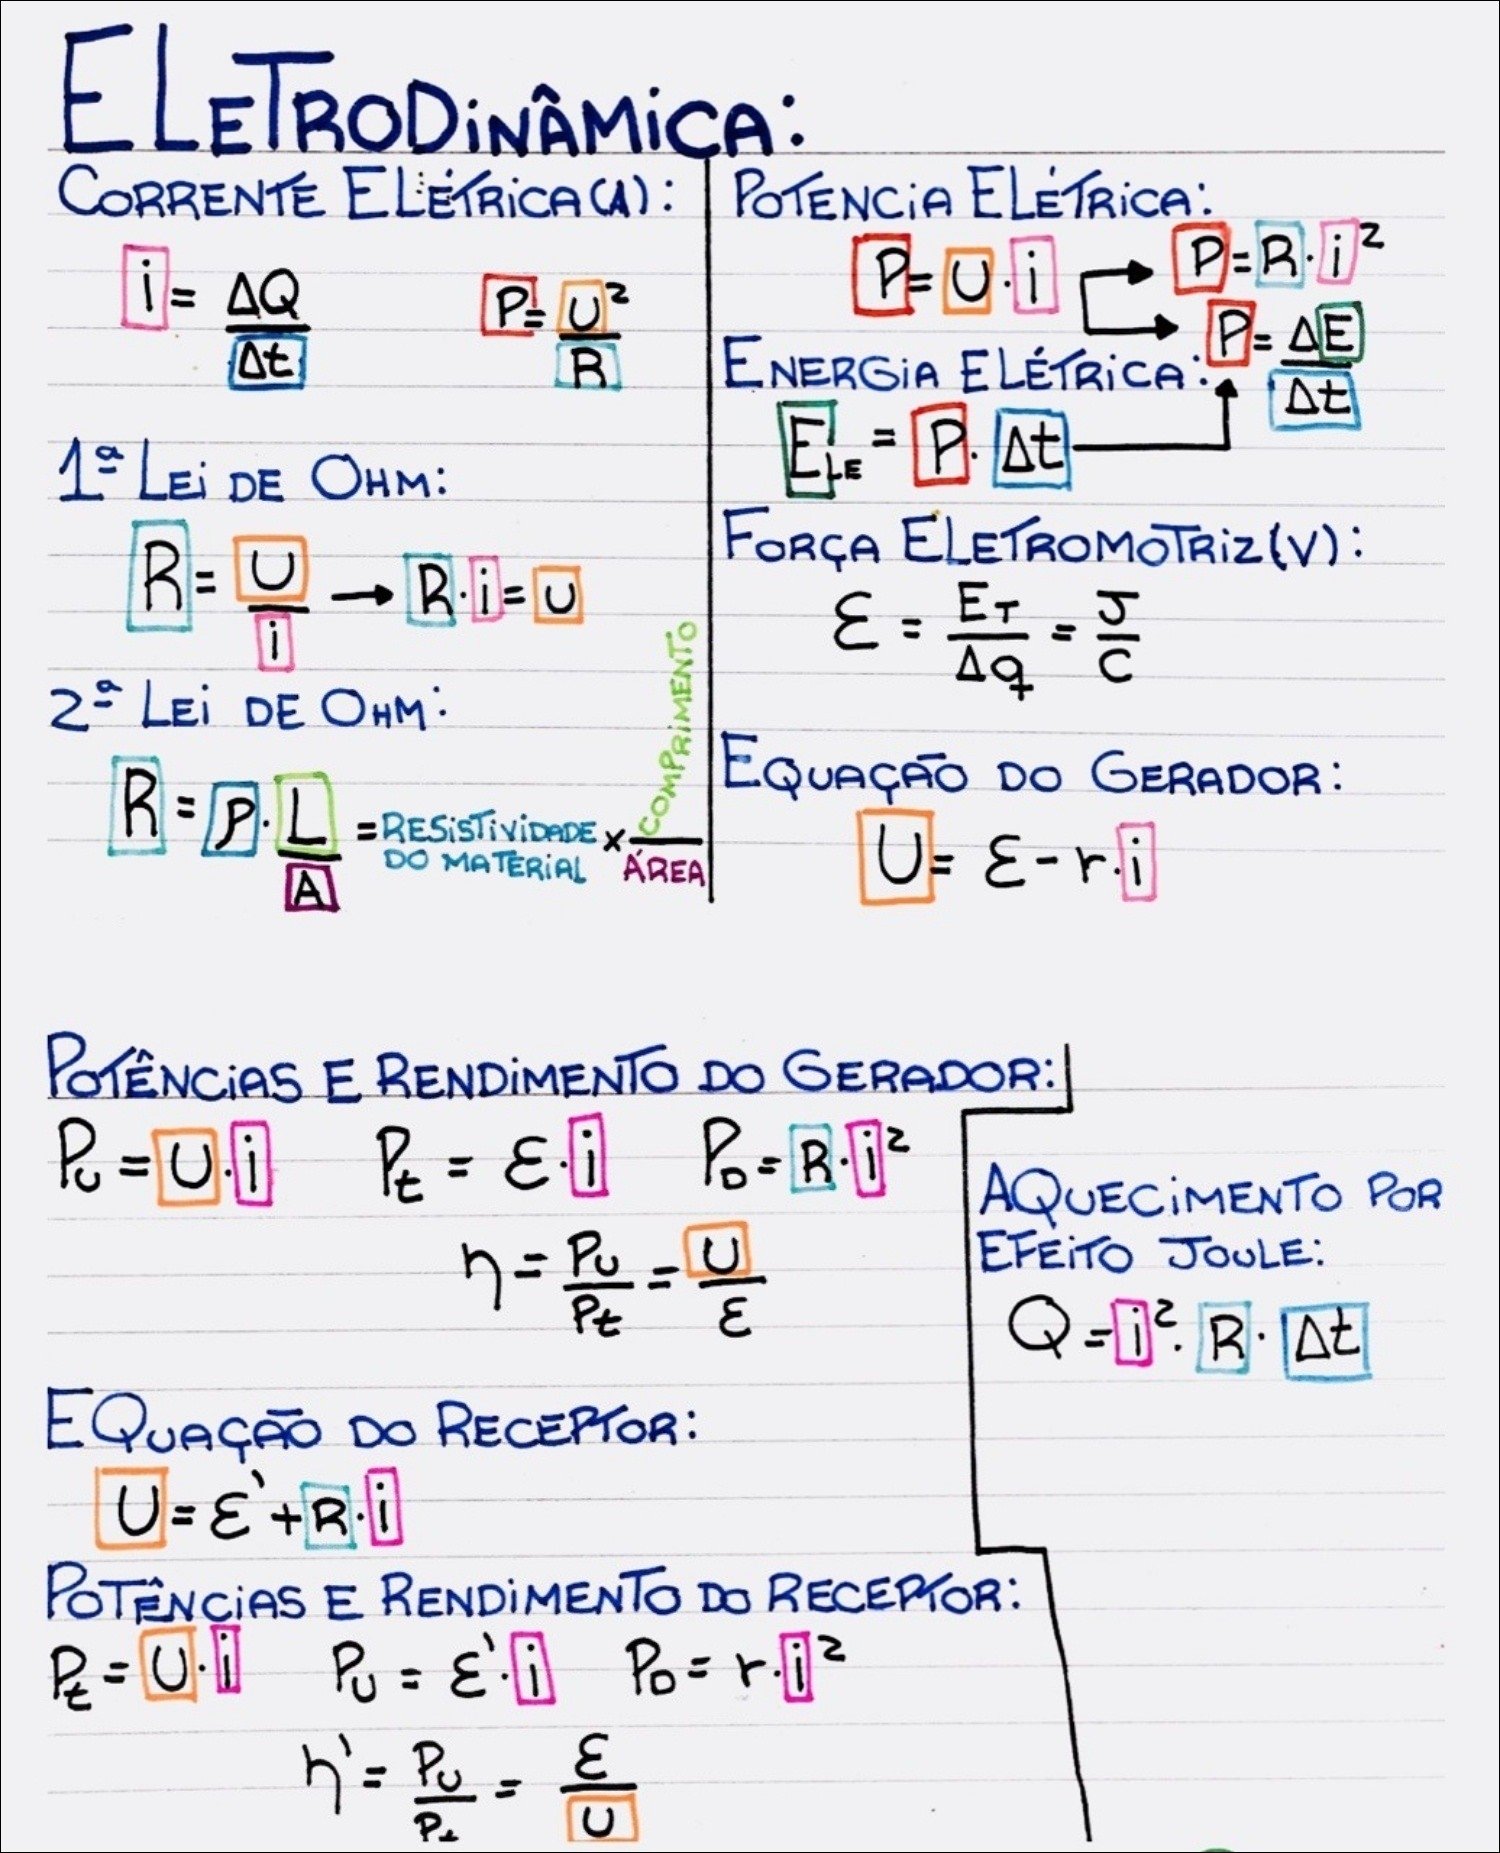 ELETRODINÂMICA:
CORRENTE ELÉTRICA(A):
i = ΔQ/Δt
P = U²/R
1ª LEI DE OHM:
R = U/i → R·i = U
2ª LEI DE OHM:
R = ρ·L/A = RESISTIVIDADE DO MATERIAL × COMPRIMENTO/ÁREA
POTENCIA ELÉTRICA:
P = U·i
P = R·i²
P = ΔE/Δt
ENERGIA ELÉTRICA:
ELE = P·Δt
FORÇA ELETROMOTRIZ(V):
Ɛ = ET/Δq = J/C
EQUAÇÃO DO GERADOR:
U = Ɛ - r·i
POTÊNCIAS E RENDIMENTO DO GERADOR:
PU = U·i Pt = Ɛ·i PD = R·i²
η = PU/Pt = U/Ɛ
AQUECIMENTO POR
EFEITO JOULE:
Q = i²·R·Δt
EQUAÇÃO DO RECEPTOR:
U = Ɛ' + R·i
POTÊNCIAS E RENDIMENTO DO RECEPTOR:
Pt = U·i PU = Ɛ'·i PD = r·i²
η' = PU/Pt = Ɛ/U